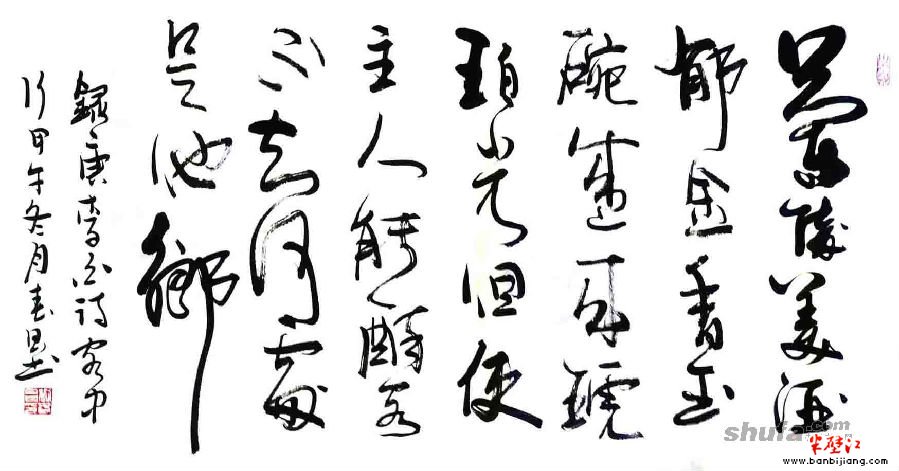 蘭陵美酒
郁金香玉
碗盛來琥
珀光但使
主人能醉客
不知何處
是他鄉
録唐李白詩客中
行甲午冬月春
shufa.com
半壁江
www.banbijiang.com